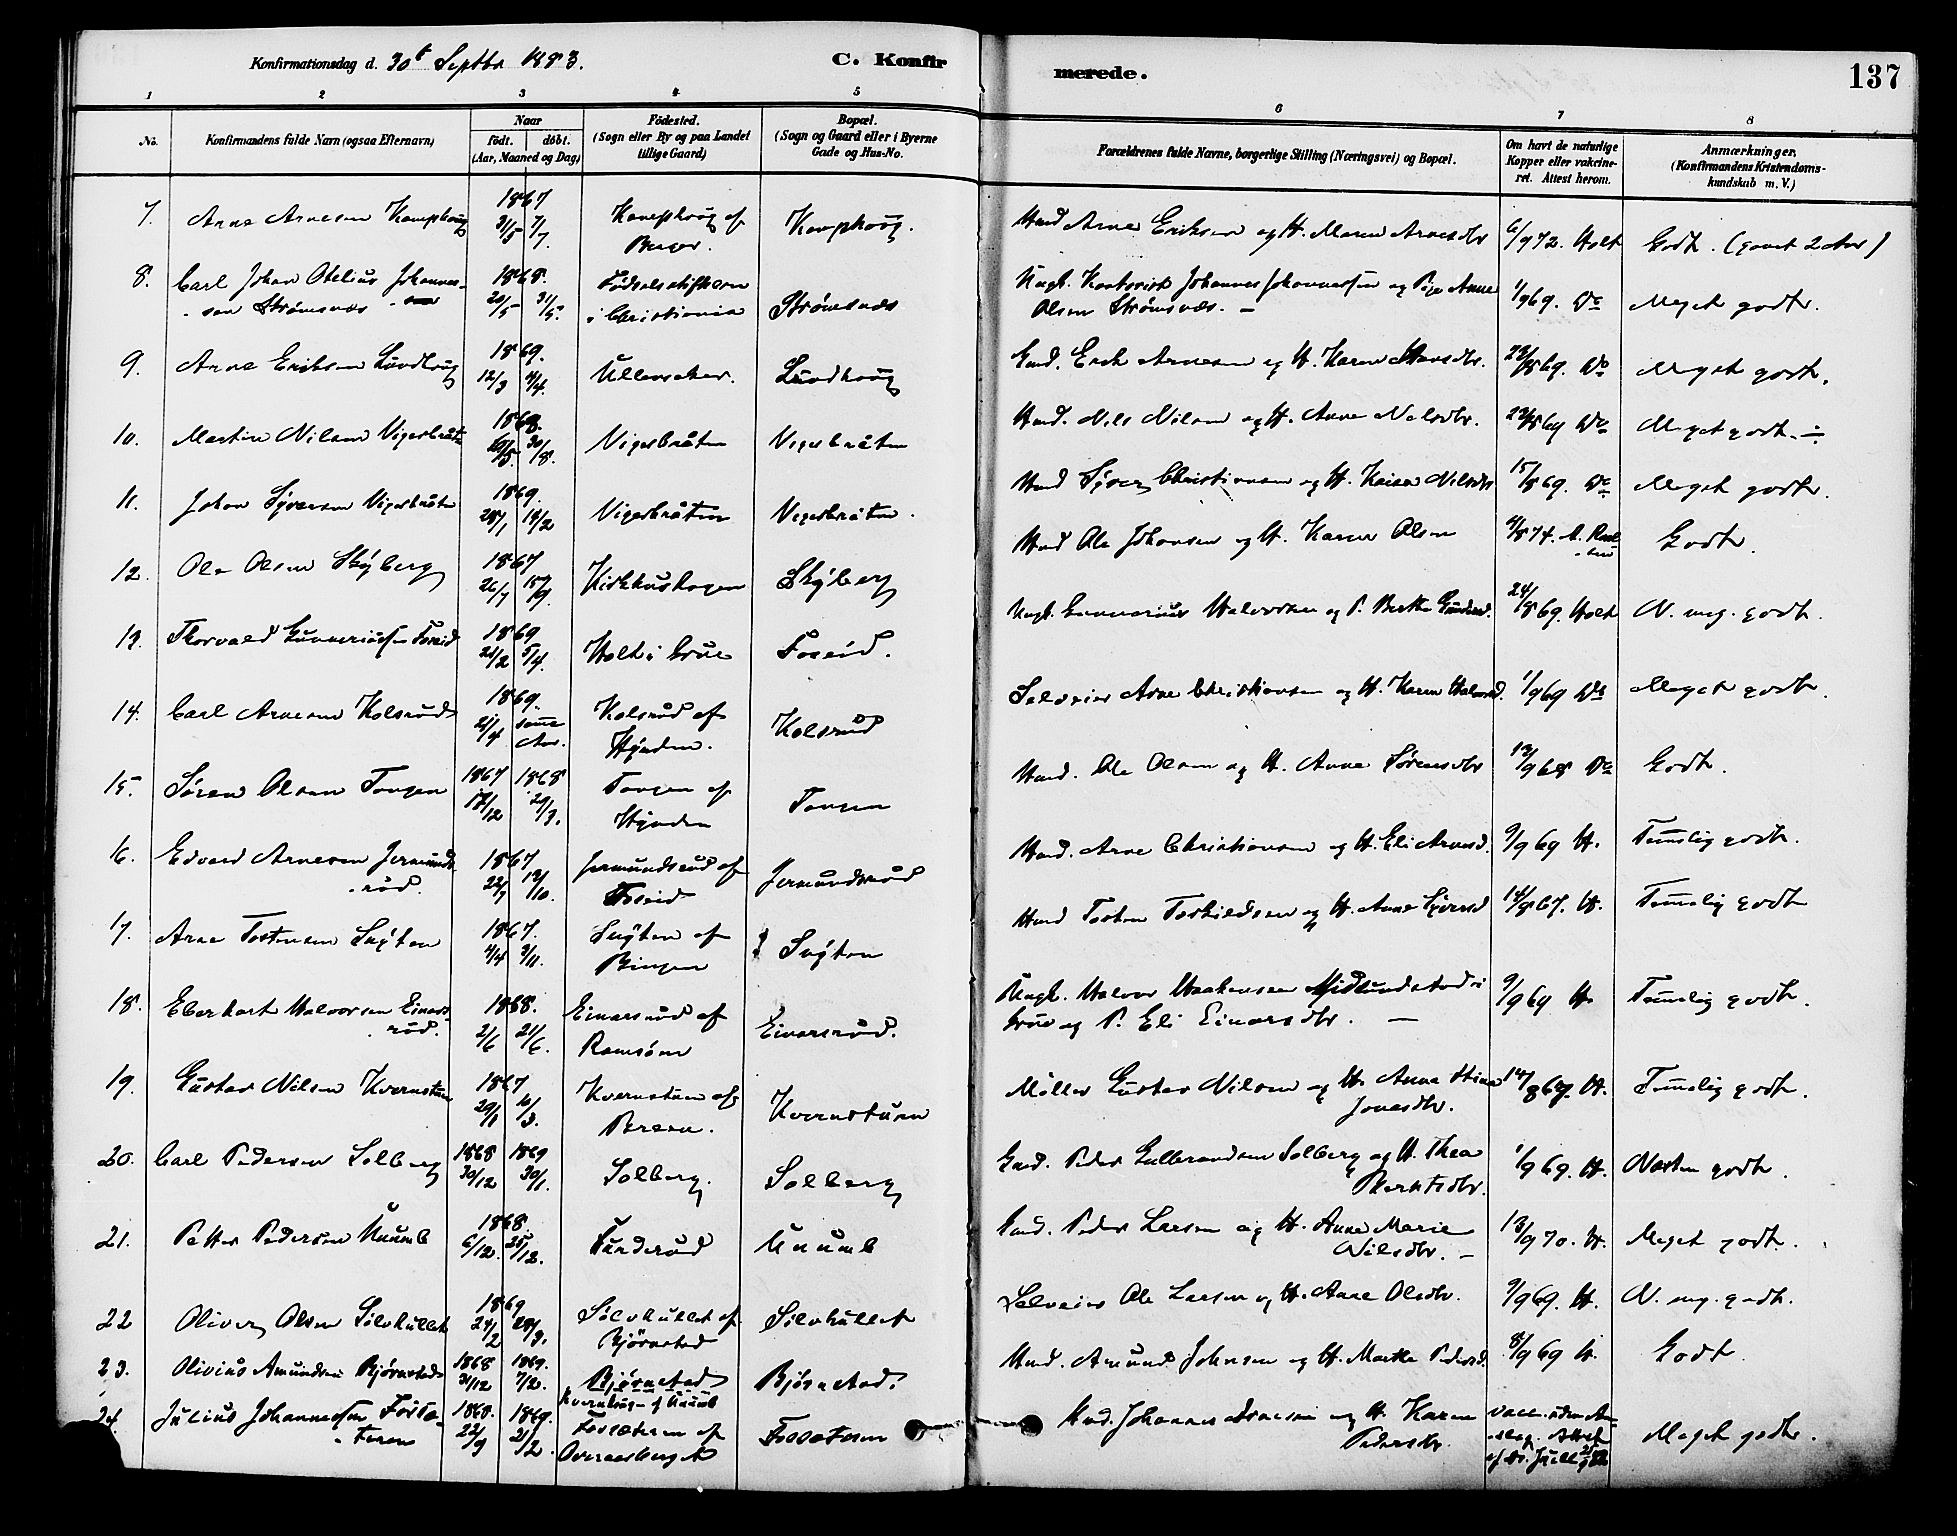 Konfirmationsdag d. 30t Septbr 1883.
C. Konfirmerede.
137
1 2 3 4 5 6 7 8
No.
Konfirmandens fulde Navn (ogsaa Efternavn)
Naar
født. døbt.
(Aar, Maaned og Dag)
Fødested.
(Sogn eller By og paa Landet
tillige Gaard)
Bopæl.
(Sogn og Gaard eller i Byerne
Gade og Hus-No.
Forældrenes fulde Navne, borgerlige Stilling (Næringsvei) og Bopæl.
Om havt de naturlige
Kopper eller vakcine-
ret. Attest herom.
Anmærkninger,
(Konfirmandens Kristendoms-
kundskab m. V.)
7. Arne Arnesen Kamphoug 1867 31/5 7/7 Kamphoug af Berger. Kamphoug. Arne Eriksen og H. Maren Arnesdtr 6/9 72. Holt Godt.
8. Carl Johan Otelius Johannes-
sen Strømsnæs 1868. 20/5 31/5. Fødselsstiftelsen i Christiania Strømsnæs Ungk. Kontorist Johannes Johannessen og Pige Anne
Olsen Strømsnæs. – 1/9 69. Do Meget godt.
9. Arne Eriksen Lundhoug 1869. 12/3 4/4. Ullensaker. Lundhoug Gmd. Erik Arnesen og H. Karen Hansdtr. 22/8 69. Do Meget godt.
10. Martin Nilsen Vigersbråten 1868. 30/8. Vigersbråten Vigersbråten Hmd. Nils Nilsen og H. Anne Nilsdtr. Do Meget godt. ÷
11. Johan Syversen Vigersbråten 1869. 28/1 14/2 Vigersbråten Vigersbråten. Hmd Syver Christiansen og H. Karen Nilsdtr 15/8 69. Do Meget godt.
12. Ole Olsen Skyberg 1867 26/7 15/9. Kirkhushagen Skyberg Hmd Ole Johansen og H. Karen Olsen 4/8 74. Godt.
13. Thorvald Gunneriusen Foseid 1869 21/2 5/4. Holt i Grue Foseid. Ungk. Gunnerius Halvorsen og P. Berthe 24/8 69. Holt N. meg. godt.
14. Carl Arnesen Kolsrud 1869. 21/4 samme Aar. Kolsrud af Hynden. Kolsrud Selveier Arne Christiansen og H. Karen Halvorsd. 1/9 69 Do Meget godt.
15. Søren Olsen Tangen 1867 17/12 1868 29/3. Tangen af Hynden Tangen Hmd. Ole Olsen og H. Anne Sørensdtr 12/9 68 Do Godt.
16. Edvard Arnesen Jermunds-
rud. 1867 22/7 12/10. Jermundsrud af Foseid Jermundsrud Hmd. Arne Christiansen og H. Eli Arnesd. 9/9 69 H. Temmelig godt.
17. Arne Tostensen Snyten 1867. 4/4 3/11. Snyten af Bingen Snyten Hmd Tosten Torkildsen og H. Anne Syversd 14/9 67. H. Temmelig godt
18. Eberhart Halvorsen Einars-
rud. 1868. 2/6 21/6. Einarsrud af Ramsøen Einarsrud. Ungk. Halvor Haakensen Midsundstad i
Grue og P. Eli Einarsdtr. – 9/9 69 H. Temmelig godt.
19. Gustav Nilsen Kvernstuen 1867 20/1 4/3. Kvernstuen af Kvernstuen Møller Gustav Nilsen og H. Anne Stine
Jonasdtr. 14/8 67. H. Temmelig godt.
20. Carl Pedersen Solberg 1868 30/12 1869 30/1. Solberg. Solberg Gmd. Peder Gulbrandsen Solberg og H. Thea
1/9 69. H. Næsten godt.
21. Petter Pedersen Knumb 1868. 6/12. 25/12. Funderud Knumb Hmd. Peder Larsen og H. Anne Marie
Nilsdtr. – 13/9 70. H. Meget godt.
22 Oliver Olsen Sølvhullet 1869 24/2 28/3. Sølvhullet af Bjørnstad Sølvhullet Selveier Ole Larsen og H. Anne Olsdtr. 9/9 69. H. N. meg. godt.
23. Olivius Amundsen Bjørnstad 1868 31/12 1869. 7/2. Bjørnstad Bjørnstad. Hmd. Amund Johnsen og H. Marthe Pedersd. 8/9 69 H. Godt.
24. Julius Johannessen Fosse-
teren 1868. 22/9 1869. 2/2. Fossæteren af Overaasberget Fosseteren Hmd. Johannes Arnesen og H. Karen
Pedersdtr. Meget godt.